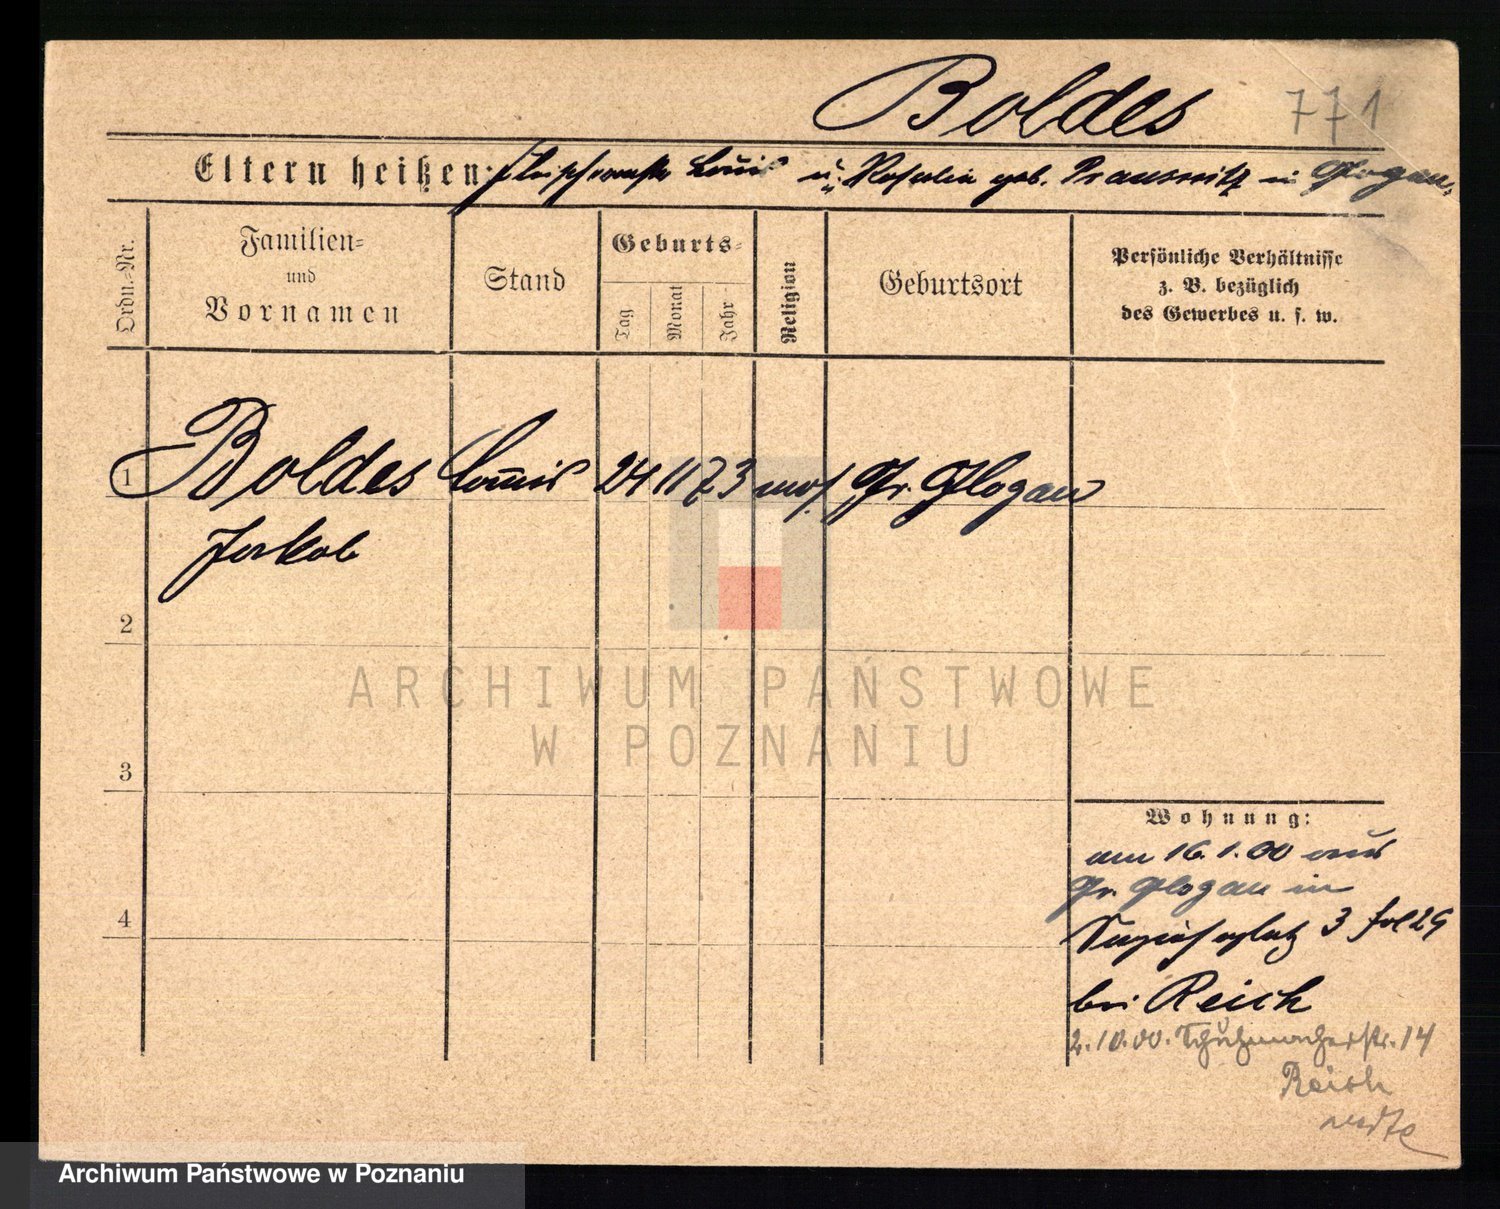 Boldes 771
Eltern heißen: Fleischermstr Louis u. Rosalie geb. Prausnitz in Glogau.
Ordn.-Nr.
Familien-
und
Vornamen
Stand
Geburts-
Tag
Monat
Jahr
Religion
Geburtsort
Persönliche Verhältnisse
z. B. bezüglich
des Gewerbes u. s. w.
1 Boldes 24 11 73 mos. Gr. Glogau
Jakob
2
3
4
Wohnung:
am 16.1.00 aus
Gr. Glogau in
3 fol 29
bei Reich
2.10.00. Schuhmacherstr. 14
Reich
ARCHIWUM PAŃSTWOWE
W POZNANIU
Archiwum Państwowe w Poznaniu